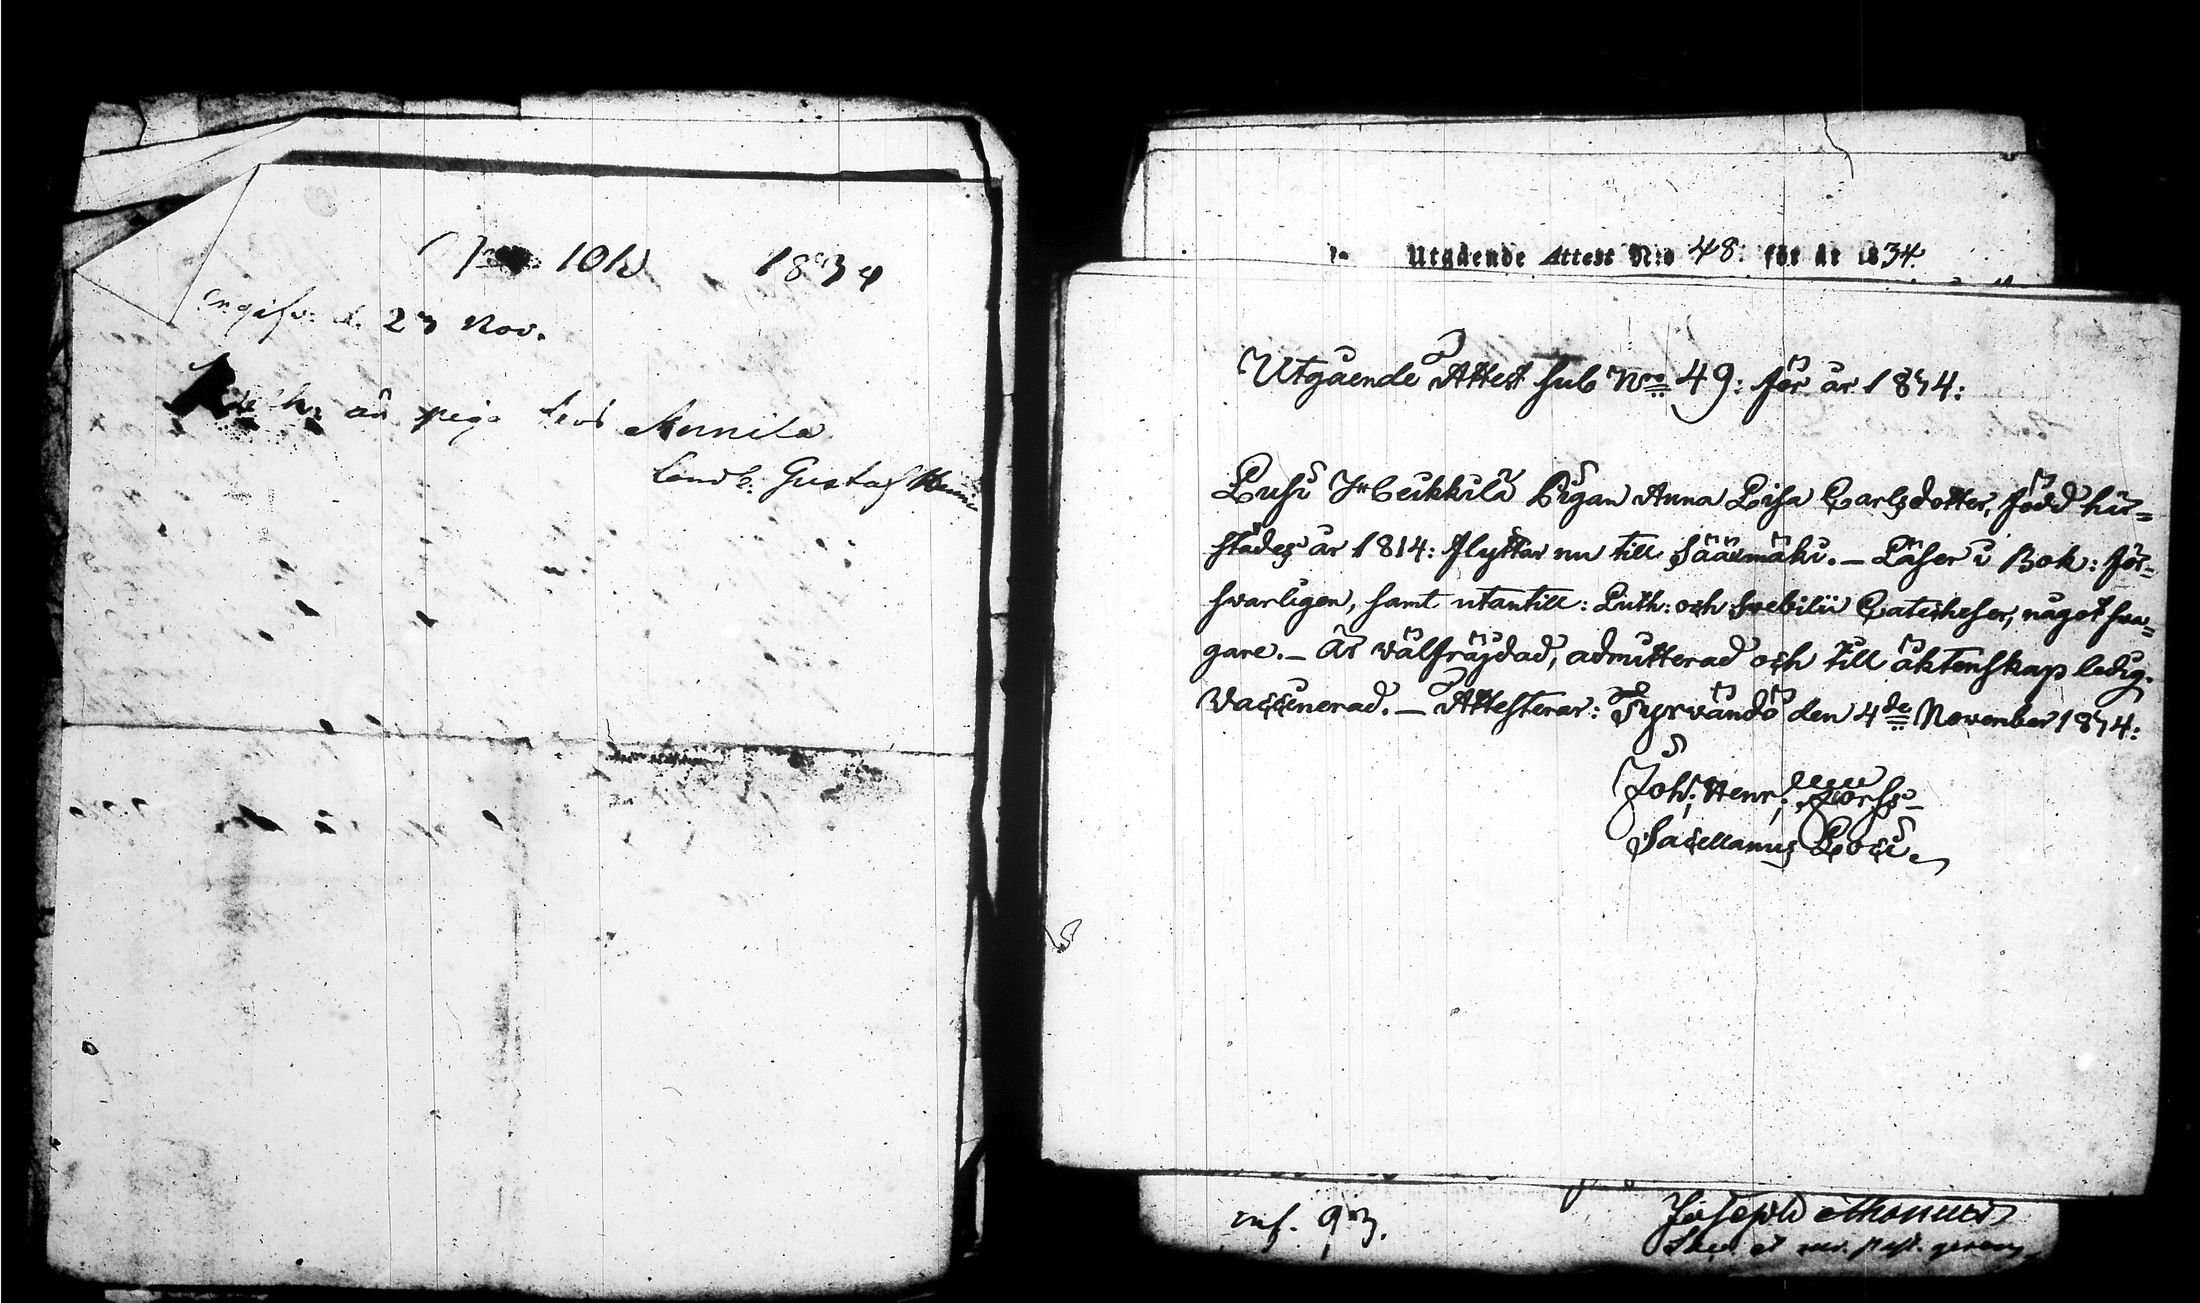 104 1834
d. 23 Nov.
piga hos Annila
Landb. Gustaf
Utgående Attest N:o 48: för år 1834.
Utgående Attest sub Nro 49: för år 1834:
Heikkilä Pigan Anna Lisa Carlsdotter, född här=
städes år 1814: flyttar nu till Sääxmäki. – Läser i Bok: för=
svarligen, samt utantill: Luth: och Svebilii Catecheser, något sva=
gare. – Är välfräjdad, admitterad och till äktenskap ledig.
Vaccinerad. – Attesterar: Tyrvändö den 4de November 1834:
Joh: Henr:
Sacellanus Loci.
inf. 93.
Joseph